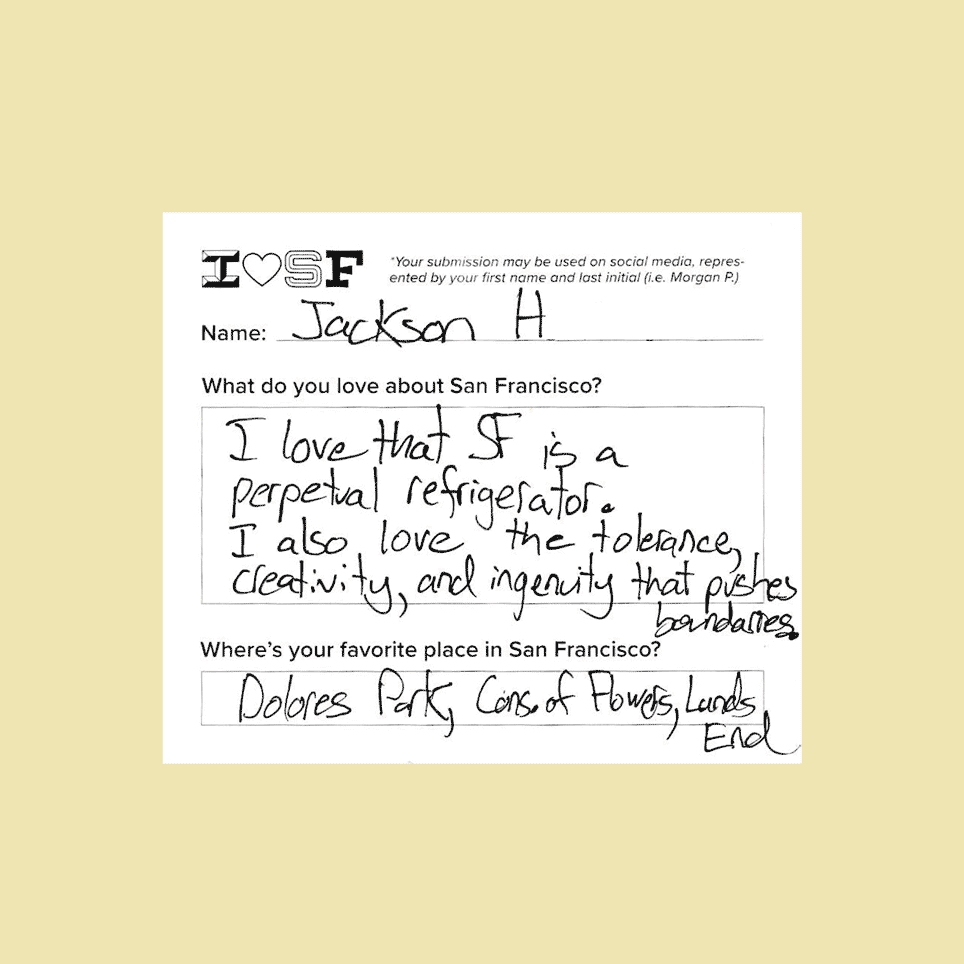 I♡SF
*Your submission may be used on social media, repres-
ented by your first name and last initial (i.e. Morgan P.)
Name: Jackson H
What do you love about San Francisco?
I love that SF is a
perpetual refrigerator.
I also love the tolerance,
creativity, and ingenuity that pushes
boundaries.
Where's your favorite place in San Francisco?
Dolores Park, Cons. of Flowers, Lands
End